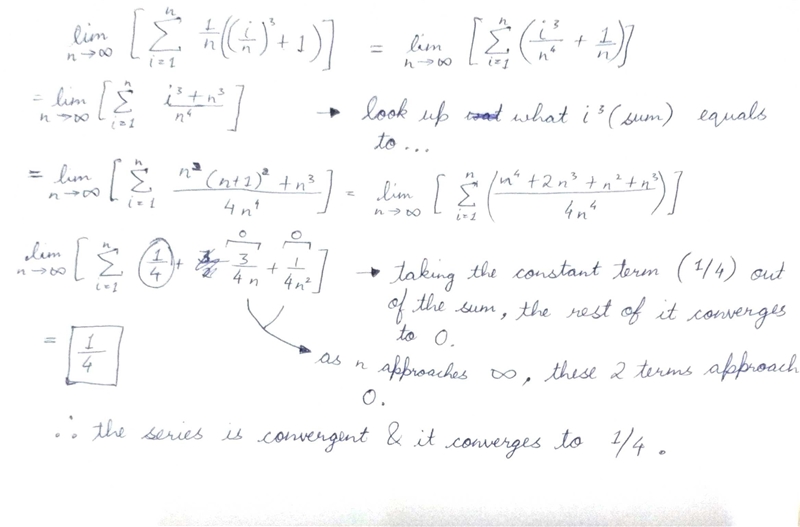 lim n→∞ [ Σ i=1 n 1/n((i/n)³ + 1)] = lim n→∞ [ Σ i=1 n (i³/n⁴ + 1/n)]
= lim n→∞ [ Σ i=1 n i³ + n³ / n⁴ ] → look up what i³ (sum) equals
to...
= lim n→∞ [ Σ i=1 n n²(n+1)² + n³ / 4n⁴ ] = lim n→∞ [ Σ i=1 n (n⁴ + 2n³ + n² + n³ / 4n⁴)]
lim n→∞ [ Σ i=1 n (1/4) + 3/4n + 1/4n² ] → taking the constant term (1/4) out
0 0
of the sum, the rest of it converges
to 0.
= 1/4
as n approaches ∞, these 2 terms approach
0.
∴ the series is convergent & it converges to 1/4.